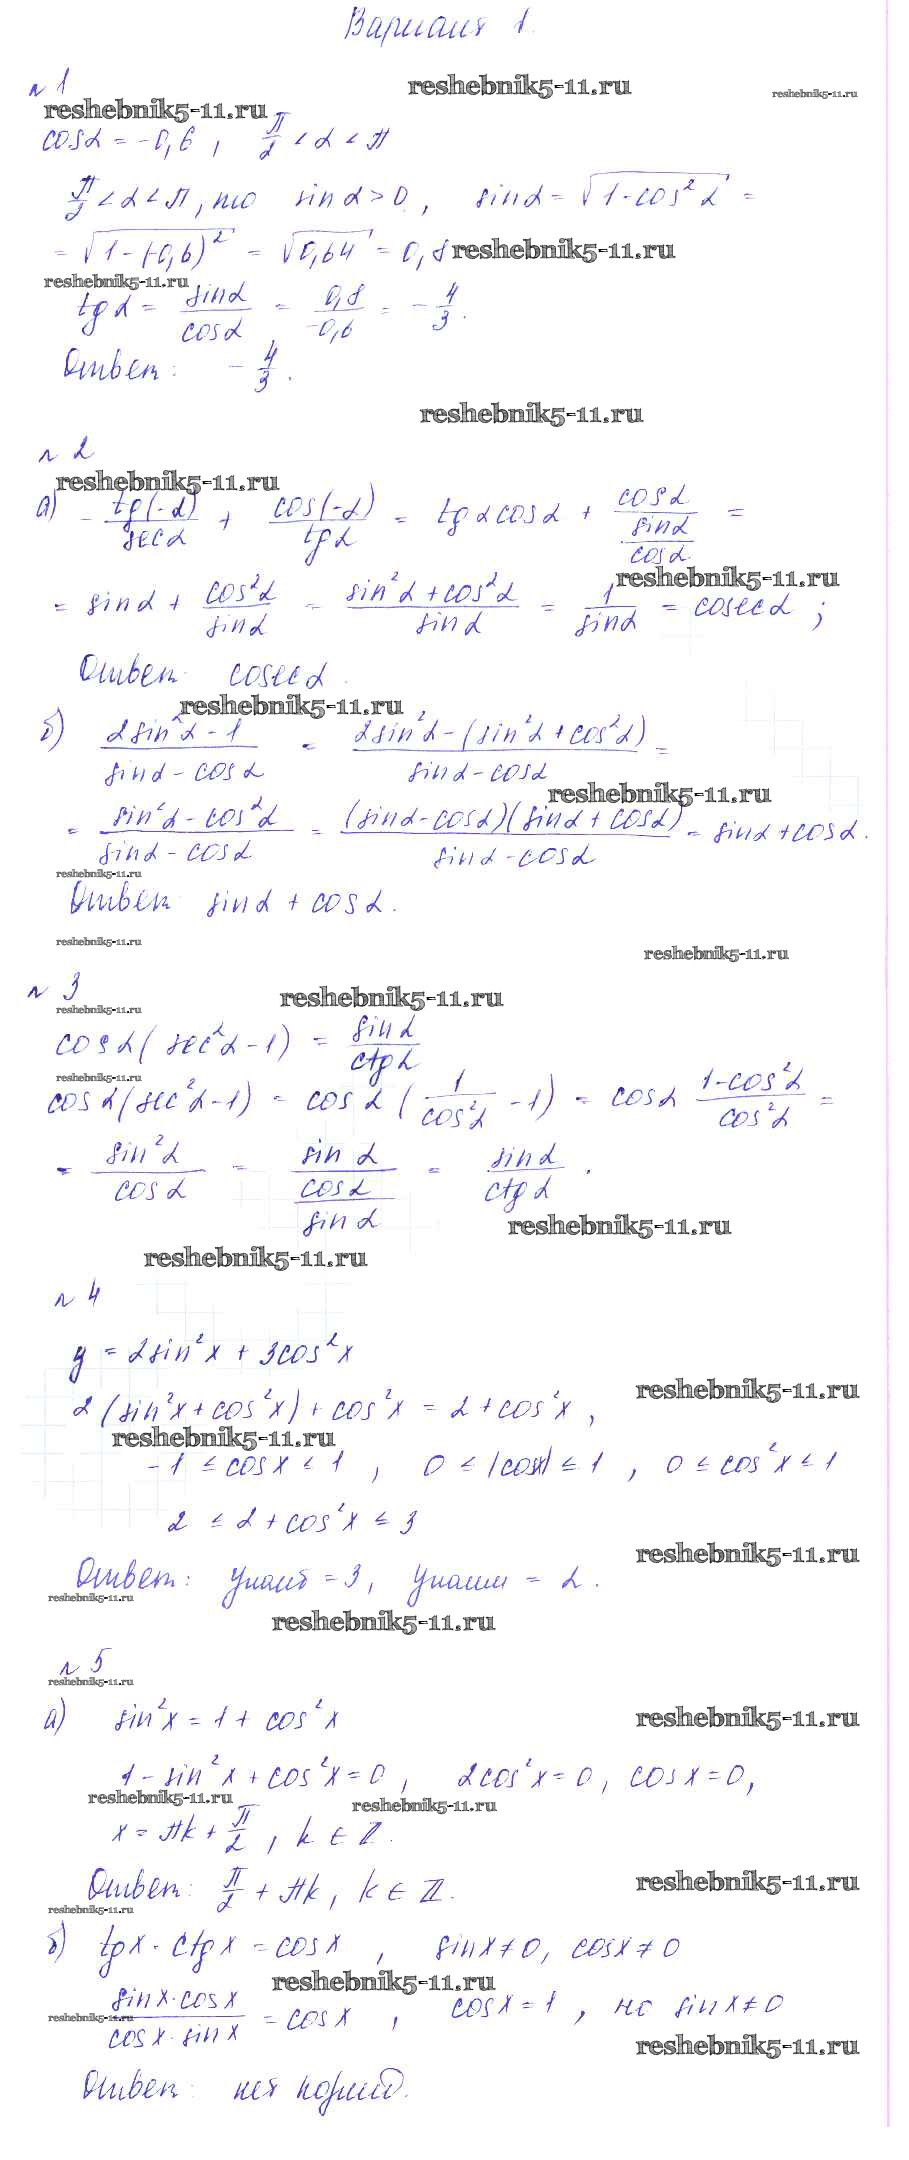 Вариант 1.
№ 1
reshebnik5-11.ru
reshebnik5-11.ru
reshebnik5-11.ru
cosα = -0,6 , π/2 < α < π
π/2 < α < π, то sinα > 0 , sinα = √(1-cos²α) =
= √(1-(-0,6)²) = √0,64 = 0,8 reshebnik5-11.ru
reshebnik5-11.ru
tgα = sinα/cosα = 0,8/-0,6 = - 4/3 .
Ответ: - 4/3 .
reshebnik5-11.ru
№ 2
reshebnik5-11.ru
а) - tg(-α)/secα + cos(-α)/tgα = tgα cosα + cosα/(sinα/cosα) =
reshebnik5-11.ru
= sinα + cos²α/sinα = (sin²α + cos²α)/sinα = 1/sinα = cosecα ;
Ответ: cosecα .
reshebnik5-11.ru
б) (2sin²α - 1)/(sinα - cosα) = (2sin²α - (sin²α + cos²α))/(sinα - cosα) =
reshebnik5-11.ru
= (sin²α - cos²α)/(sinα - cosα) = (sinα - cosα)(sinα + cosα)/(sinα - cosα) = sinα + cosα .
reshebnik5-11.ru
Ответ: sinα + cosα .
reshebnik5-11.ru
reshebnik5-11.ru
№ 3
reshebnik5-11.ru
reshebnik5-11.ru
cosα (sec²α - 1) = sinα/ctgα
reshebnik5-11.ru
cosα (sec²α - 1) = cosα (1/cos²α - 1) = cosα (1-cos²α)/cos²α =
= sin²α/cosα = sinα/(cosα/sinα) = sinα/ctgα .
reshebnik5-11.ru
reshebnik5-11.ru
№ 4
y = 2sin²x + 3cos²x
reshebnik5-11.ru
2 (sin²x + cos²x) + cos²x = 2 + cos²x ,
reshebnik5-11.ru
-1 ≤ cosx ≤ 1 , 0 ≤ |cosx| ≤ 1 , 0 ≤ cos²x ≤ 1
2 ≤ 2 + cos²x ≤ 3
reshebnik5-11.ru
Ответ: yнаиб = 3, yнаим = 2 .
reshebnik5-11.ru
reshebnik5-11.ru
№ 5
reshebnik5-11.ru
а) sin²x = 1 + cos²x
reshebnik5-11.ru
1 - sin²x + cos²x = 0 , 2cos²x = 0 , cosx = 0,
reshebnik5-11.ru
reshebnik5-11.ru
x = πk + π/2 , k ∈ Z .
Ответ: π/2 + πk , k ∈ Z .
reshebnik5-11.ru
reshebnik5-11.ru
б) tgx · ctgx = cosx , sinx ≠ 0, cosx ≠ 0
reshebnik5-11.ru
(sinx · cosx)/(cosx · sinx) = cosx , cosx = 1 , но sinx ≠ 0
reshebnik5-11.ru
reshebnik5-11.ru
Ответ: нет корней.